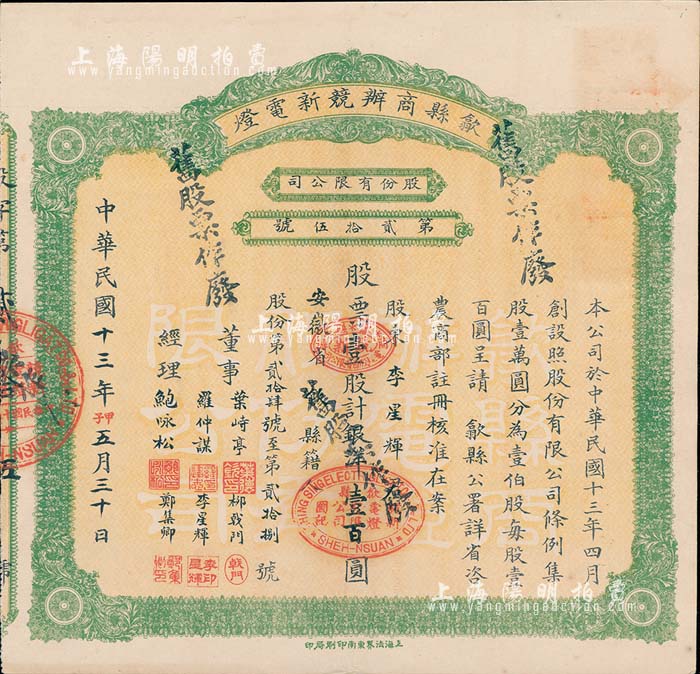 上海陽明拍賣
www.yangmingauction.com
歙縣商辦競新電燈
股份有限公司
第貳拾伍號
本公司於中華民國十三年四月
創設照股份有限公司條例集
股壹萬圓分為壹伯股每股壹
百圓呈請 歙縣公署詳省咨
農商部註冊核准在案
股東 李星輝
安徽省 縣籍
股票壹股計銀洋壹百圓
股份第貳拾肆號至第貳拾捌號
董事 葉峙亭 柳戟門
羅仲謀 李星輝
經理 鮑咏松 鄭集卿
中華民國十三年甲子五月三十日
舊股票作廢
舊股票作廢
舊股票作廢
SHEH-HSUAN
上海法界東南印刷局印
上海陽明拍賣
www.yangmingauction.com